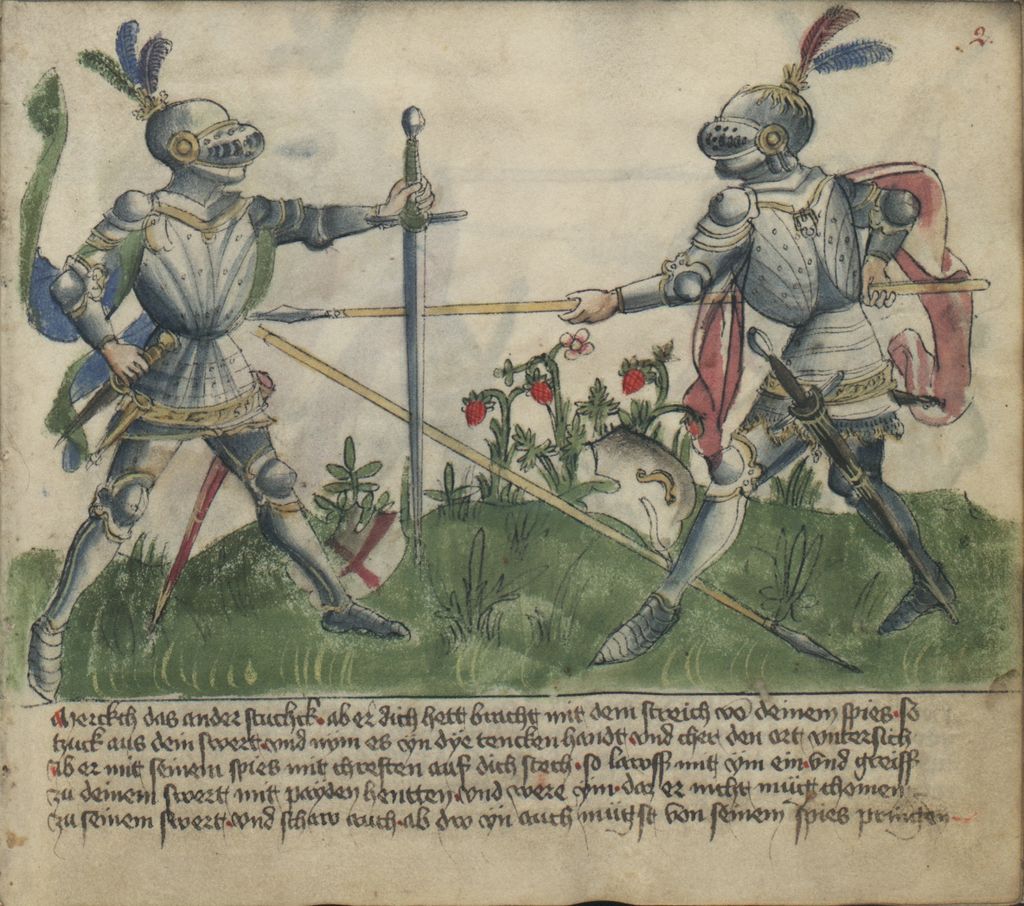 2.
Merckch das ander stuckch. ab er dich hett bracht mit dem streich vō deinem spies. so
tzuck aus dein swert. vnd nym es yn dye tencken handt vnd cher den ort vntersich
ab er mit seinem spies mit chreften auf dich stech. so lawff mit ym ein. vnd greiff
zu deinem swert mit payden hentten. vnd were ym. das er nicht mügt chomen
zu seinem swert. vnd schaw auch. ab dw yn auch mügst von seinem spies pringen